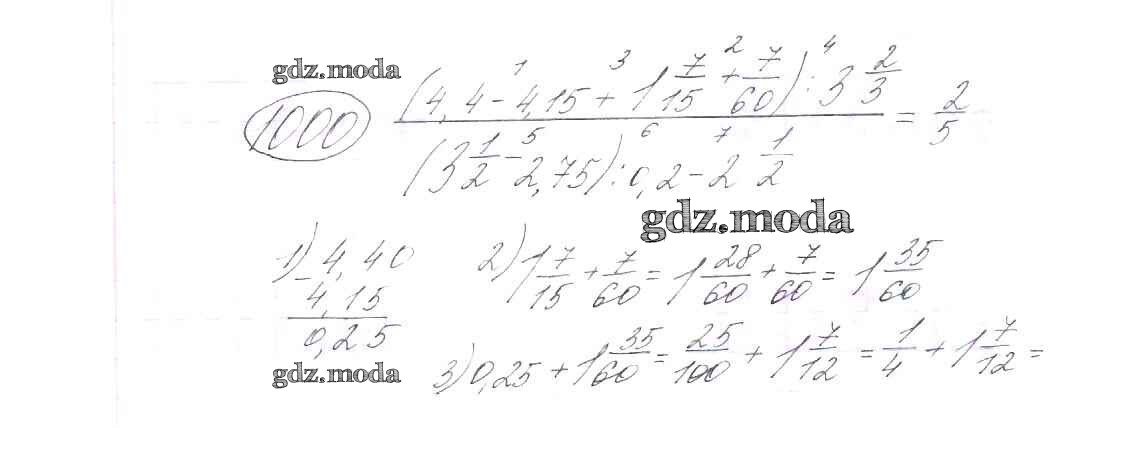 gdz.moda
1000 (4,4 - 4,15 + 1 7/15 + 7/60) : 3 2/3 / (3 1/2 - 2,75) : 0,2 - 2 1/2 = 2/5
1 3 2 4
5 6 7
gdz.moda
1) 4,40 - 4,15 = 0,25
2) 1 7/15 + 7/60 = 1 28/60 + 7/60 = 1 35/60
gdz.moda
3) 0,25 + 1 35/60 = 25/100 + 1 7/12 = 1/4 + 1 7/12 =